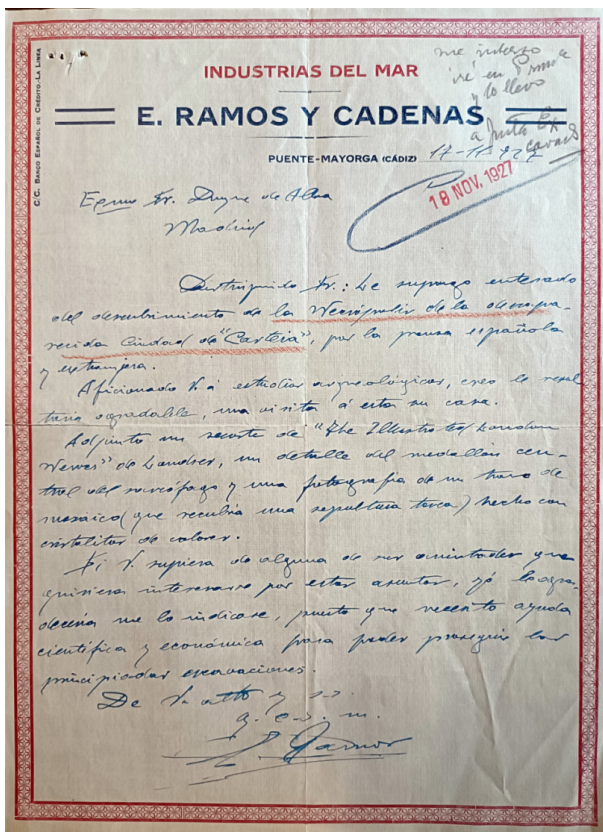 C/C. BANCO ESPAÑOL DE CRÉDITO.-LA LINEA
INDUSTRIAS DEL MAR
E. RAMOS Y CADENAS
PUENTE-MAYORGA (CÁDIZ) 17-11-927
me interesa
iré en
y lo llevo
a Junta Ex
cavacs
18 NOV. 1927
Excmo Sr. Duque de Alba
Madrid
Distinguido Sr.: Le supongo enterado
del descubrimiento de la Necrópolis de la desapa-
recida Ciudad de "Carteia", por la prensa española
y extranjera.
Aficionado V. á estudios arqueológicos, creo le resul
taria agradable, una visita á esta su casa.
Adjunto un recorte de "The Illustrated London
News" de Londres, un detalle del medallón cen-
tral del sarcófago y una fotografia de un trozo de
mosaico (que recubria una sepultura tosca) hecho con
cristalitos de colores.
Si V. supiera de alguna de sus amistades que
quisiera interesarse por estos asuntos, yó le agra-
deceria me lo indicase, puesto que necesito ayuda
científica y económica para poder proseguir las
principiadas excavaciones.
De V. atto y s.s.
q. e. s. m.
E. Ramos